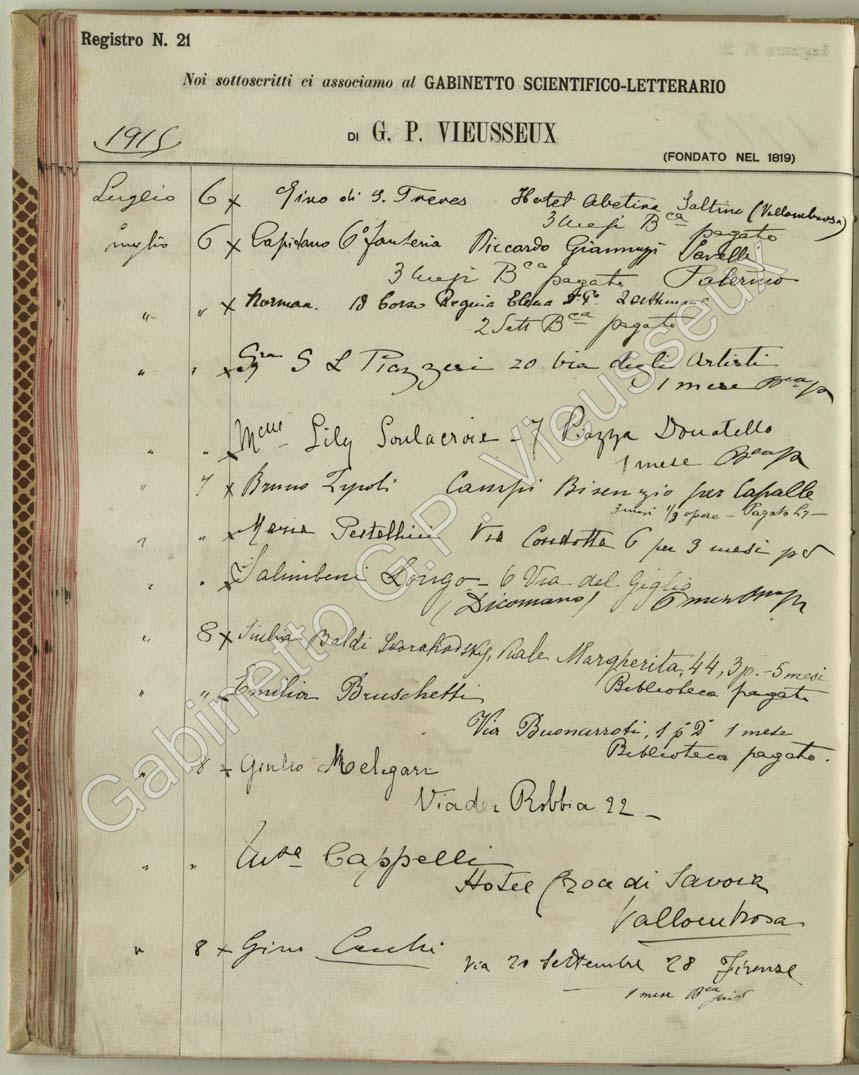 Registro N. 21
Noi sottoscritti ci associamo al GABINETTO SCIENTIFICO-LETTERARIO
1915
DI G. P. VIEUSSEUX
(FONDATO NEL 1819)
Luglio 6 x Gino di S. Treves Hotel Abetina Saltino (Vallombrosa)
3 mesi Bca pagato
luglio 6 x Capitano 6° fanteria Riccardo Giannuzzi Savelli
3 mesi Bca pagato Palermo
" " x Norman. 18 Corso Regina Elena 2 settimane
2 Sett Bca pagato
" " x S L Piazzesi 20 via degli Artisti
1 mese Bca p
" " x Melle Lily Soulacroix - 7 Piazza Donatello
1 mese Bca p
" 7 x Bruno Zipoli Campi Bisenzio per Capalle
3 mesi 1/3 opere - Pagato L7 -
" " x Maria Pestellini Via Condotta 6 per 3 mesi
" " x Salimbeni Longo - 6 Via del Giglio
(Dicomano)
" 8 x Giulia Baldi Viale Margherita, 44, 3 p. - 5 mesi
Biblioteca pagato
" " x Emilia Bruschetti
Via Buonarroti, 1 p° 2° 1 mese
Biblioteca pagato.
" 8 x Giulio Melegari
Via della Robbia 22 -
" " Cappelli
Hotel Croce di Savoia
Vallombrosa
" 8 x Gino Cecchi
Via 20 Settembre 28 Firenze
1 mese Bca
Gabinetto G.P. Vieusseux